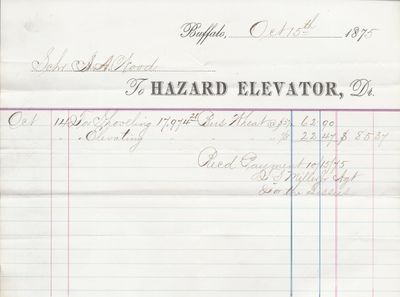 Buffalo, Oct 15th 1875
Schr J. A. Wood
To HAZARD ELEVATOR, Dr.
Oct 14 For Shoveling 17,974 Bus Wheat @ 62.90
" " Elevating " " " 22.47 $ 85.37
Recd Payment 10/15/75
Miller Agt
For the